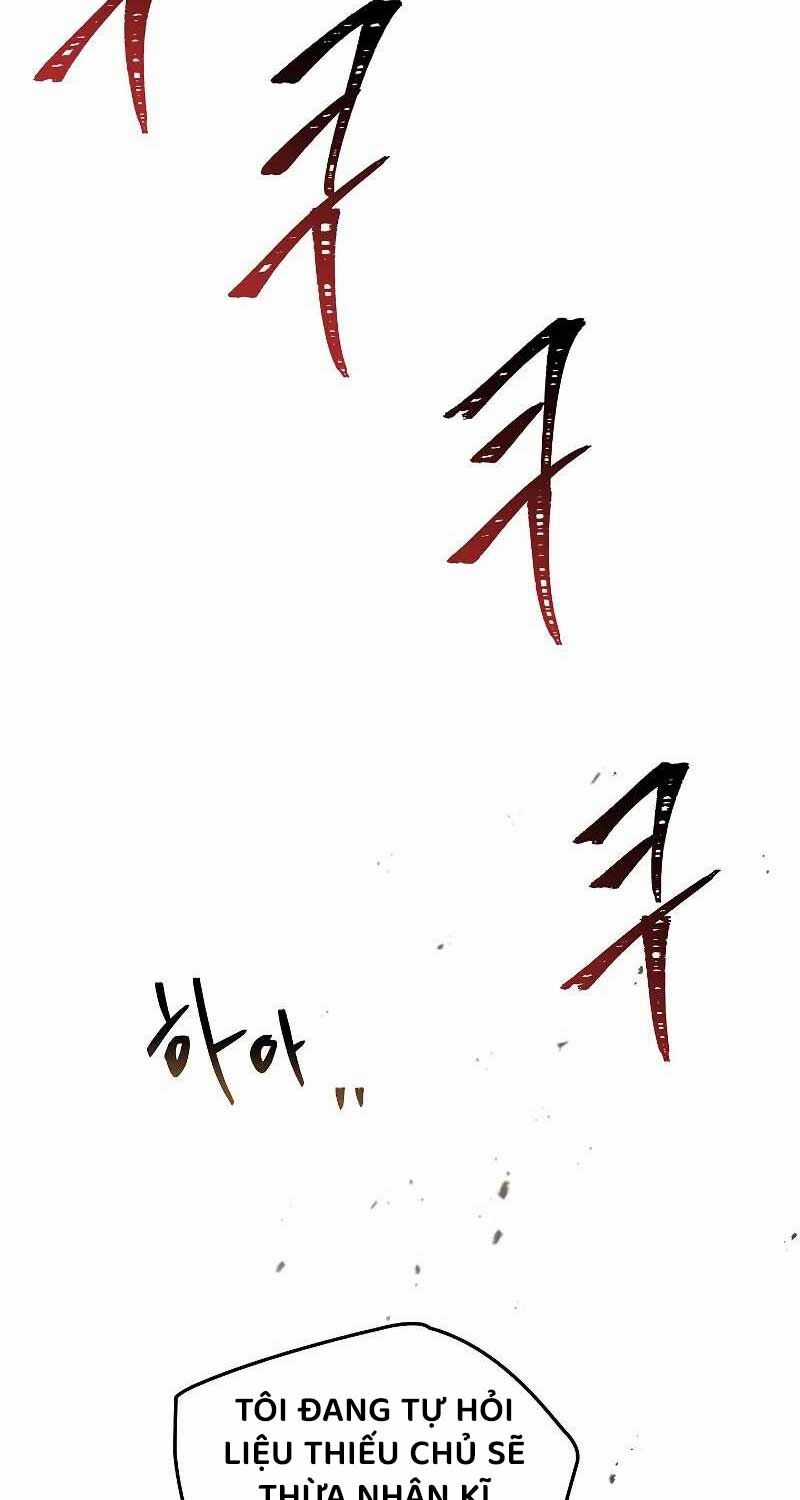 크
크
크
하아"
TÔI ĐANG TỰ HỎI
LIỆU THIẾU CHỦ SẼ
THỪA NHẬN KĨ